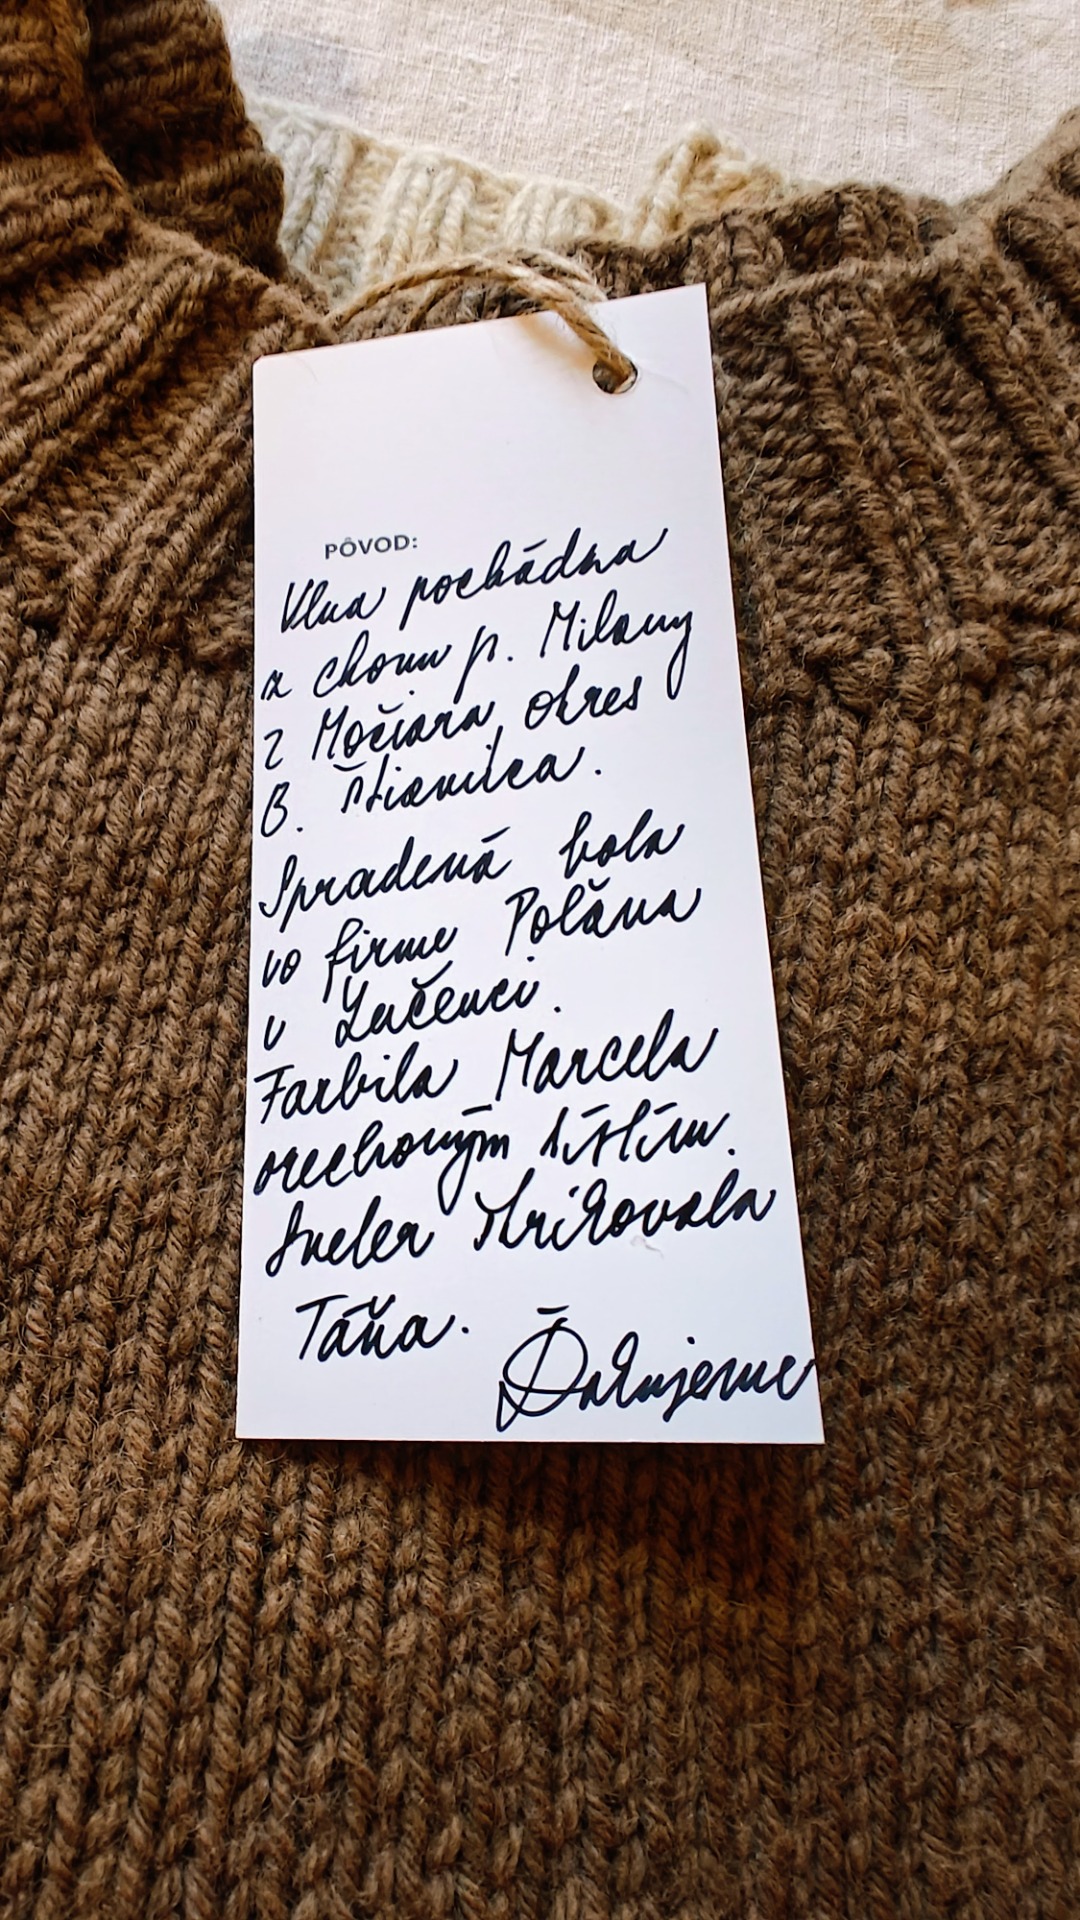 PÔVOD:
Vlna pochádza
z chovu p. Milany
z Močiara, okres
B. Štiavnica.
Spradená bola
vo firme Polăna
v Lučenci.
Farbila Marcela
orechovým lístím.
Sveter štrikovala
Táňa.
Ďakujeme